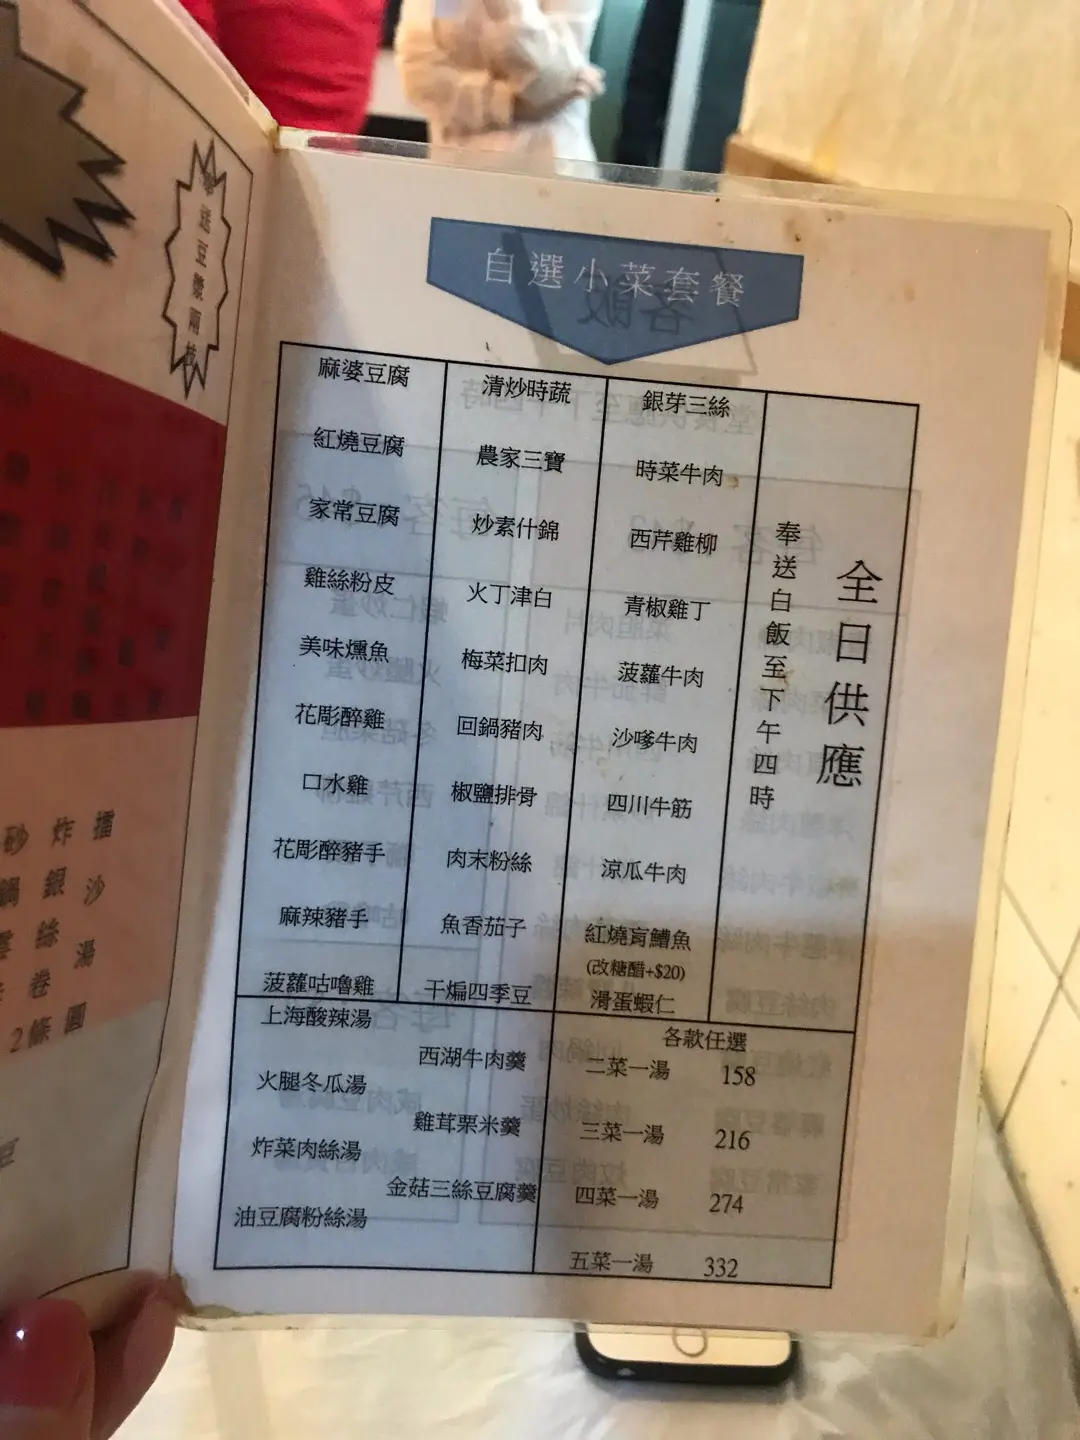 送豆漿兩枝
砂鍋雲
炸銀絲卷 2條
擂沙湯圓
自選小菜套餐
麻婆豆腐
紅燒豆腐
家常豆腐
雞絲粉皮
美味燻魚
花彫醉雞
口水雞
花彫醉豬手
麻辣豬手
菠蘿咕嚕雞
清炒時蔬
農家三寶
炒素什錦
火丁津白
梅菜扣肉
回鍋豬肉
椒鹽排骨
肉末粉絲
魚香茄子
干煸四季豆
銀芽三絲
時菜牛肉
西芹雞柳
青椒雞丁
菠蘿牛肉
沙嗲牛肉
四川牛筋
涼瓜牛肉
紅燒肓鰽魚
(改糖醋+$20)
滑蛋蝦仁
全日供應
奉送白飯至下午四時
上海酸辣湯
西湖牛肉羹
火腿冬瓜湯
雞茸粟米羹
炸菜肉絲湯
金菇三絲豆腐羹
油豆腐粉絲湯
各款任選
二菜一湯 158
三菜一湯 216
四菜一湯 274
五菜一湯 332